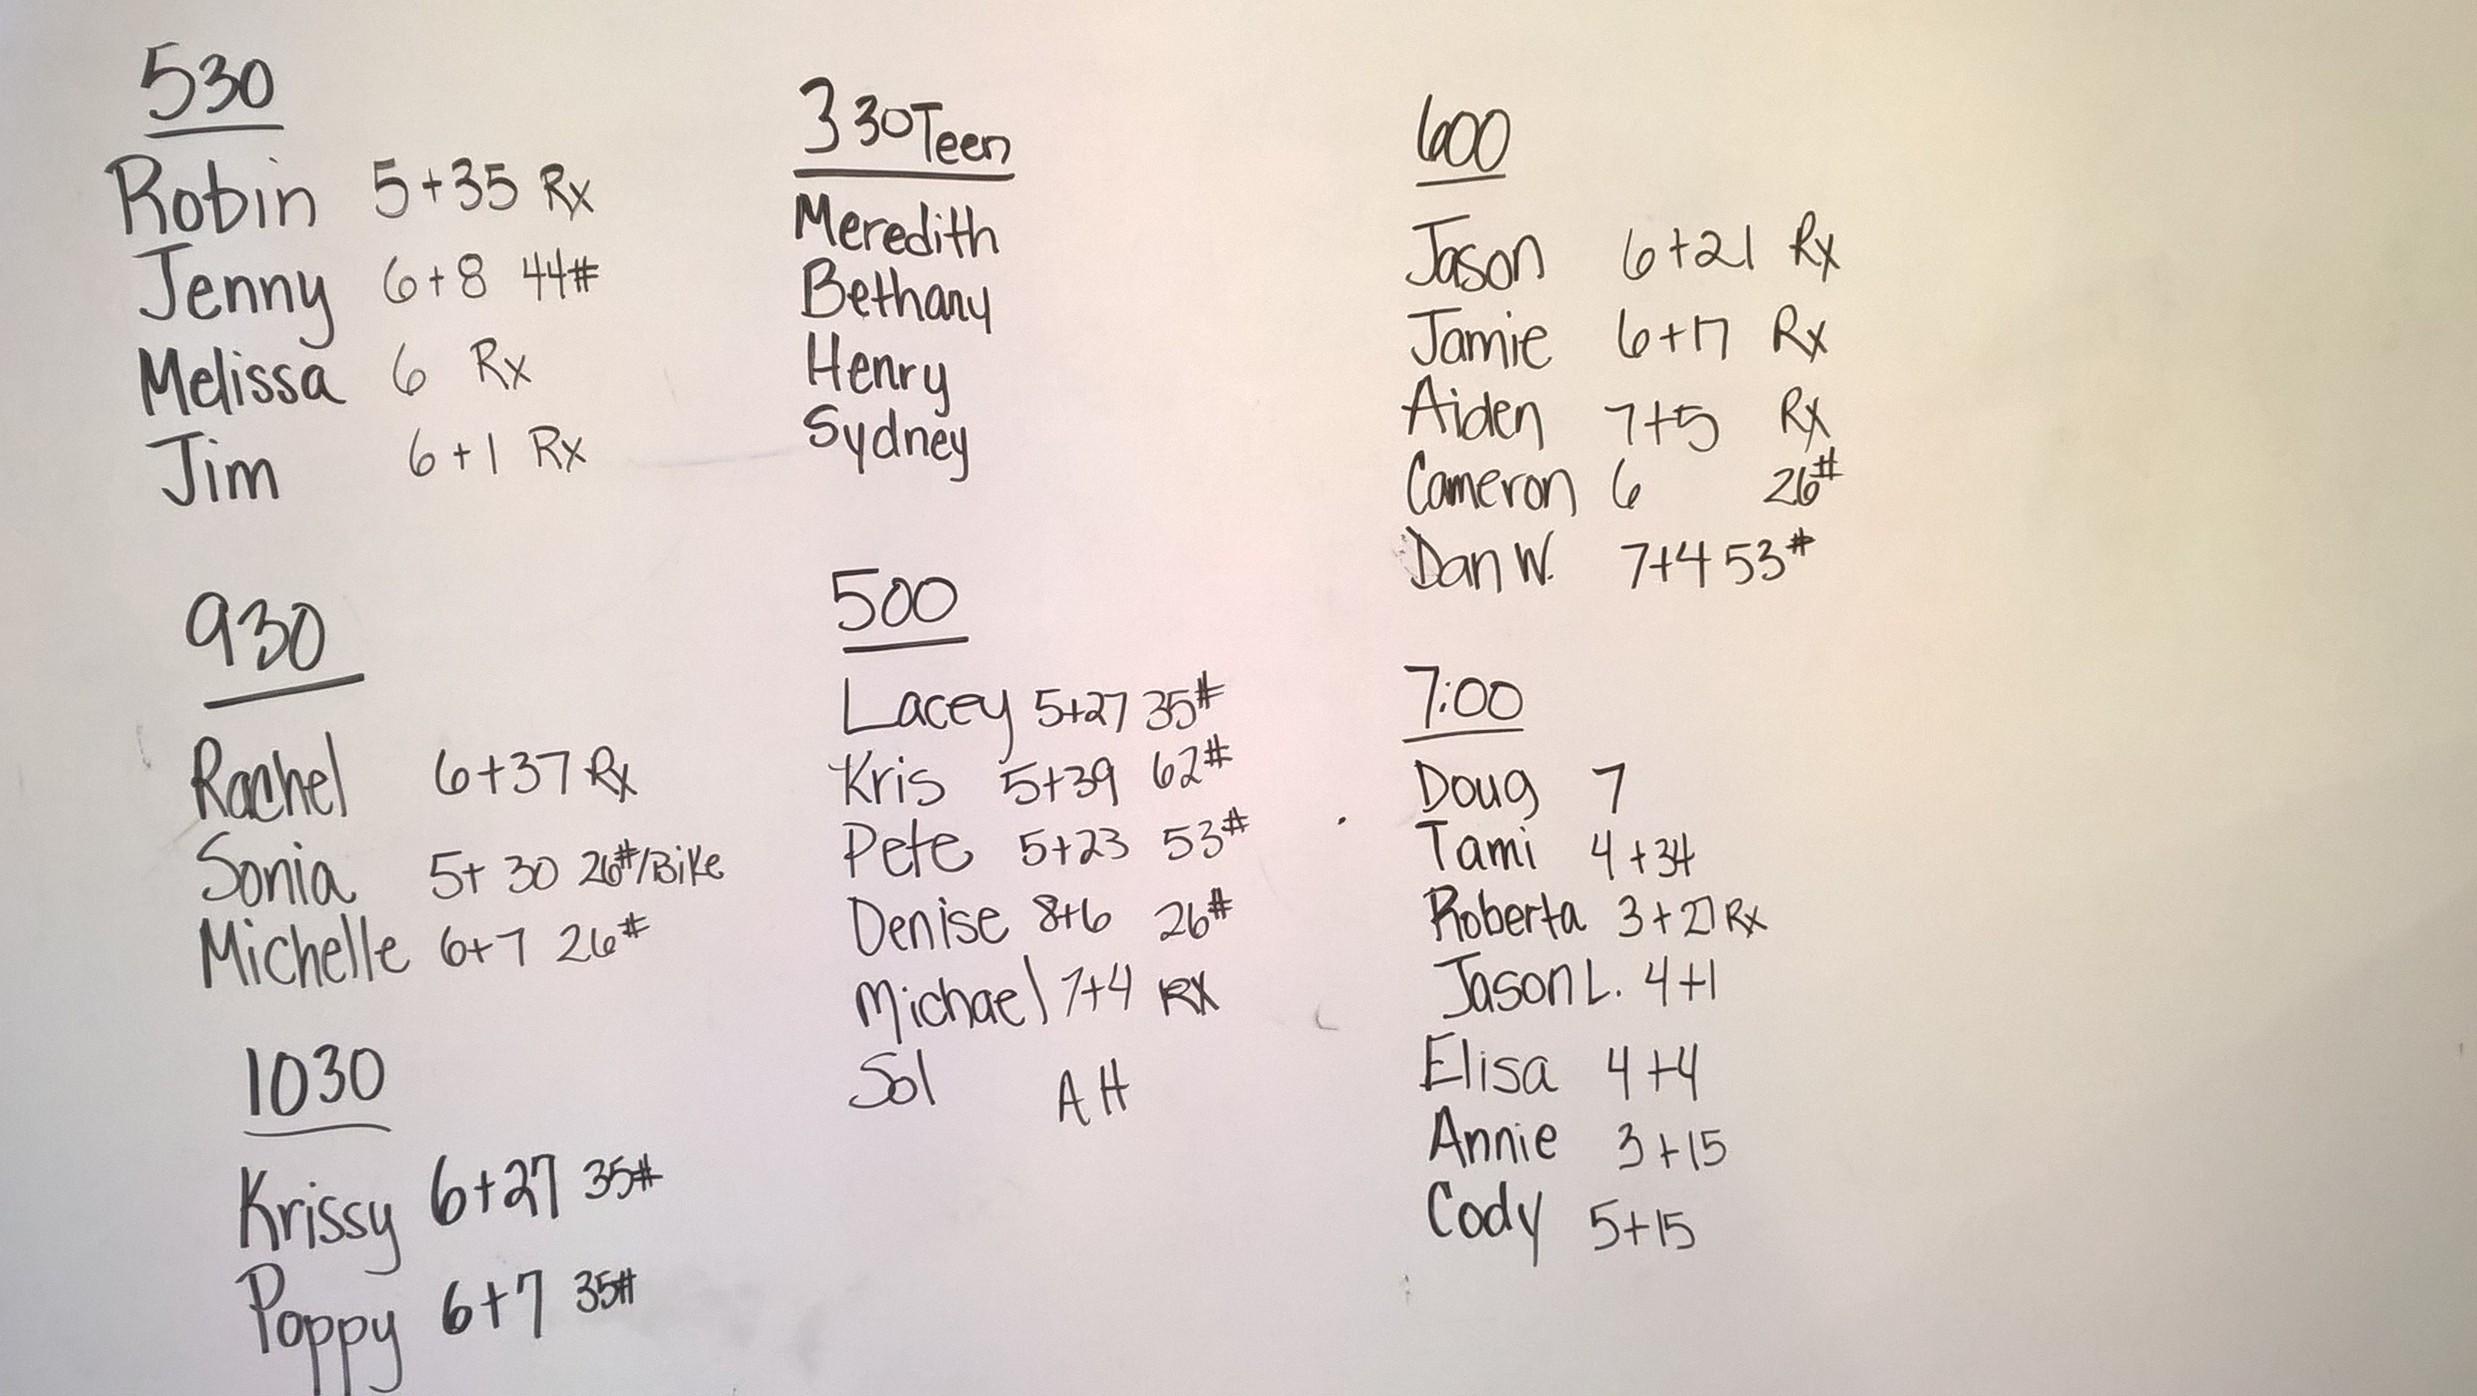 530
Robin 5+35 Rx
Jenny 6+8 44#
Melissa 6 Rx
Jim 6+1 Rx
930
Rachel 6+37 Rx
Sonia 5+30 26#/Bike
Michelle 6+7 26#
1030
Krissy 6+27 35#
Poppy 6+7 35#
330 Teen
Meredith
Bethany
Henry
Sydney
500
Lacey 5+27 35#
Kris 5+39 62#
Pete 5+23 53#
Denise 8+6 26#
Michael 7+4 RX
Sol AH
600
Jason 6+21 Rx
Jamie 6+17 Rx
Aiden 7+5 Rx
Cameron 6 26#
Dan W. 7+4 53#
7:00
Doug 7
Tami 4+34
Roberta 3+27 Rx
Jason L. 4+1
Elisa 4+4
Annie 3+15
Cody 5+15